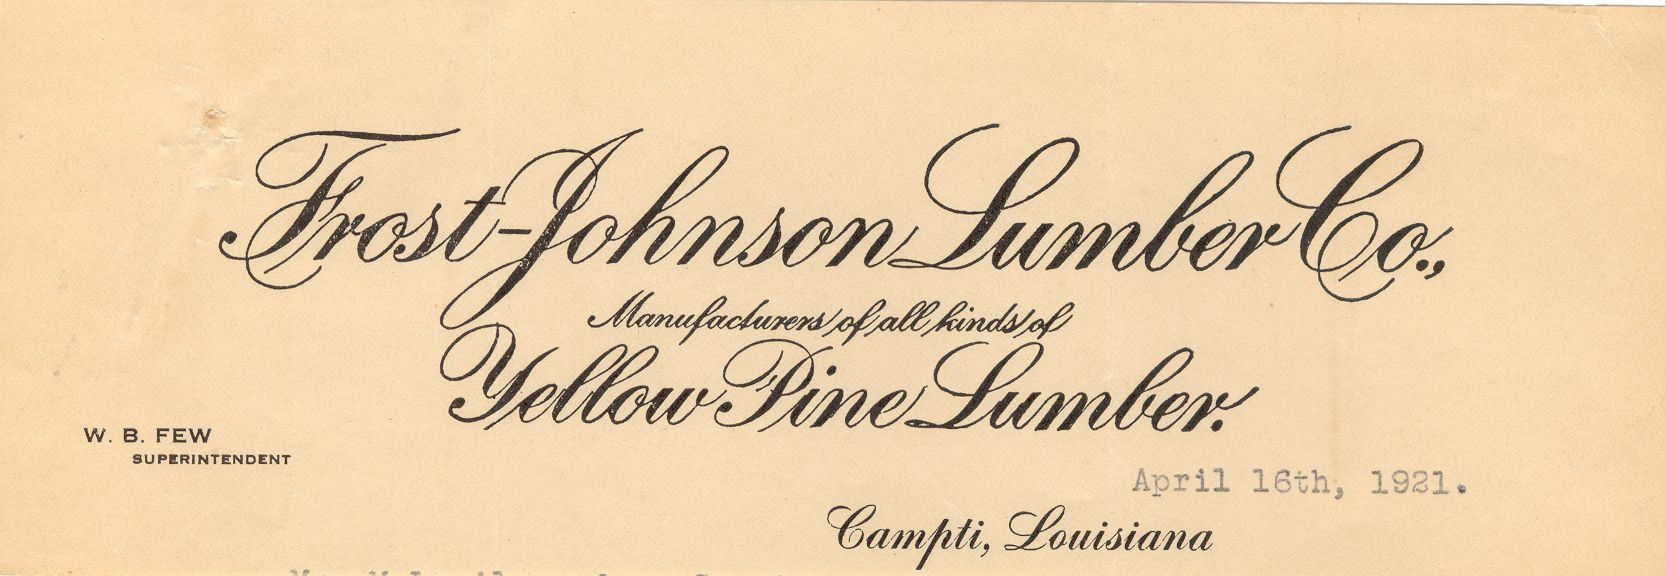 Frost-Johnson Lumber Co.,
Manufacturers of all kinds of
Yellow Pine Lumber.
W. B. FEW
SUPERINTENDENT
April 16th, 1921.
Campti, Louisiana